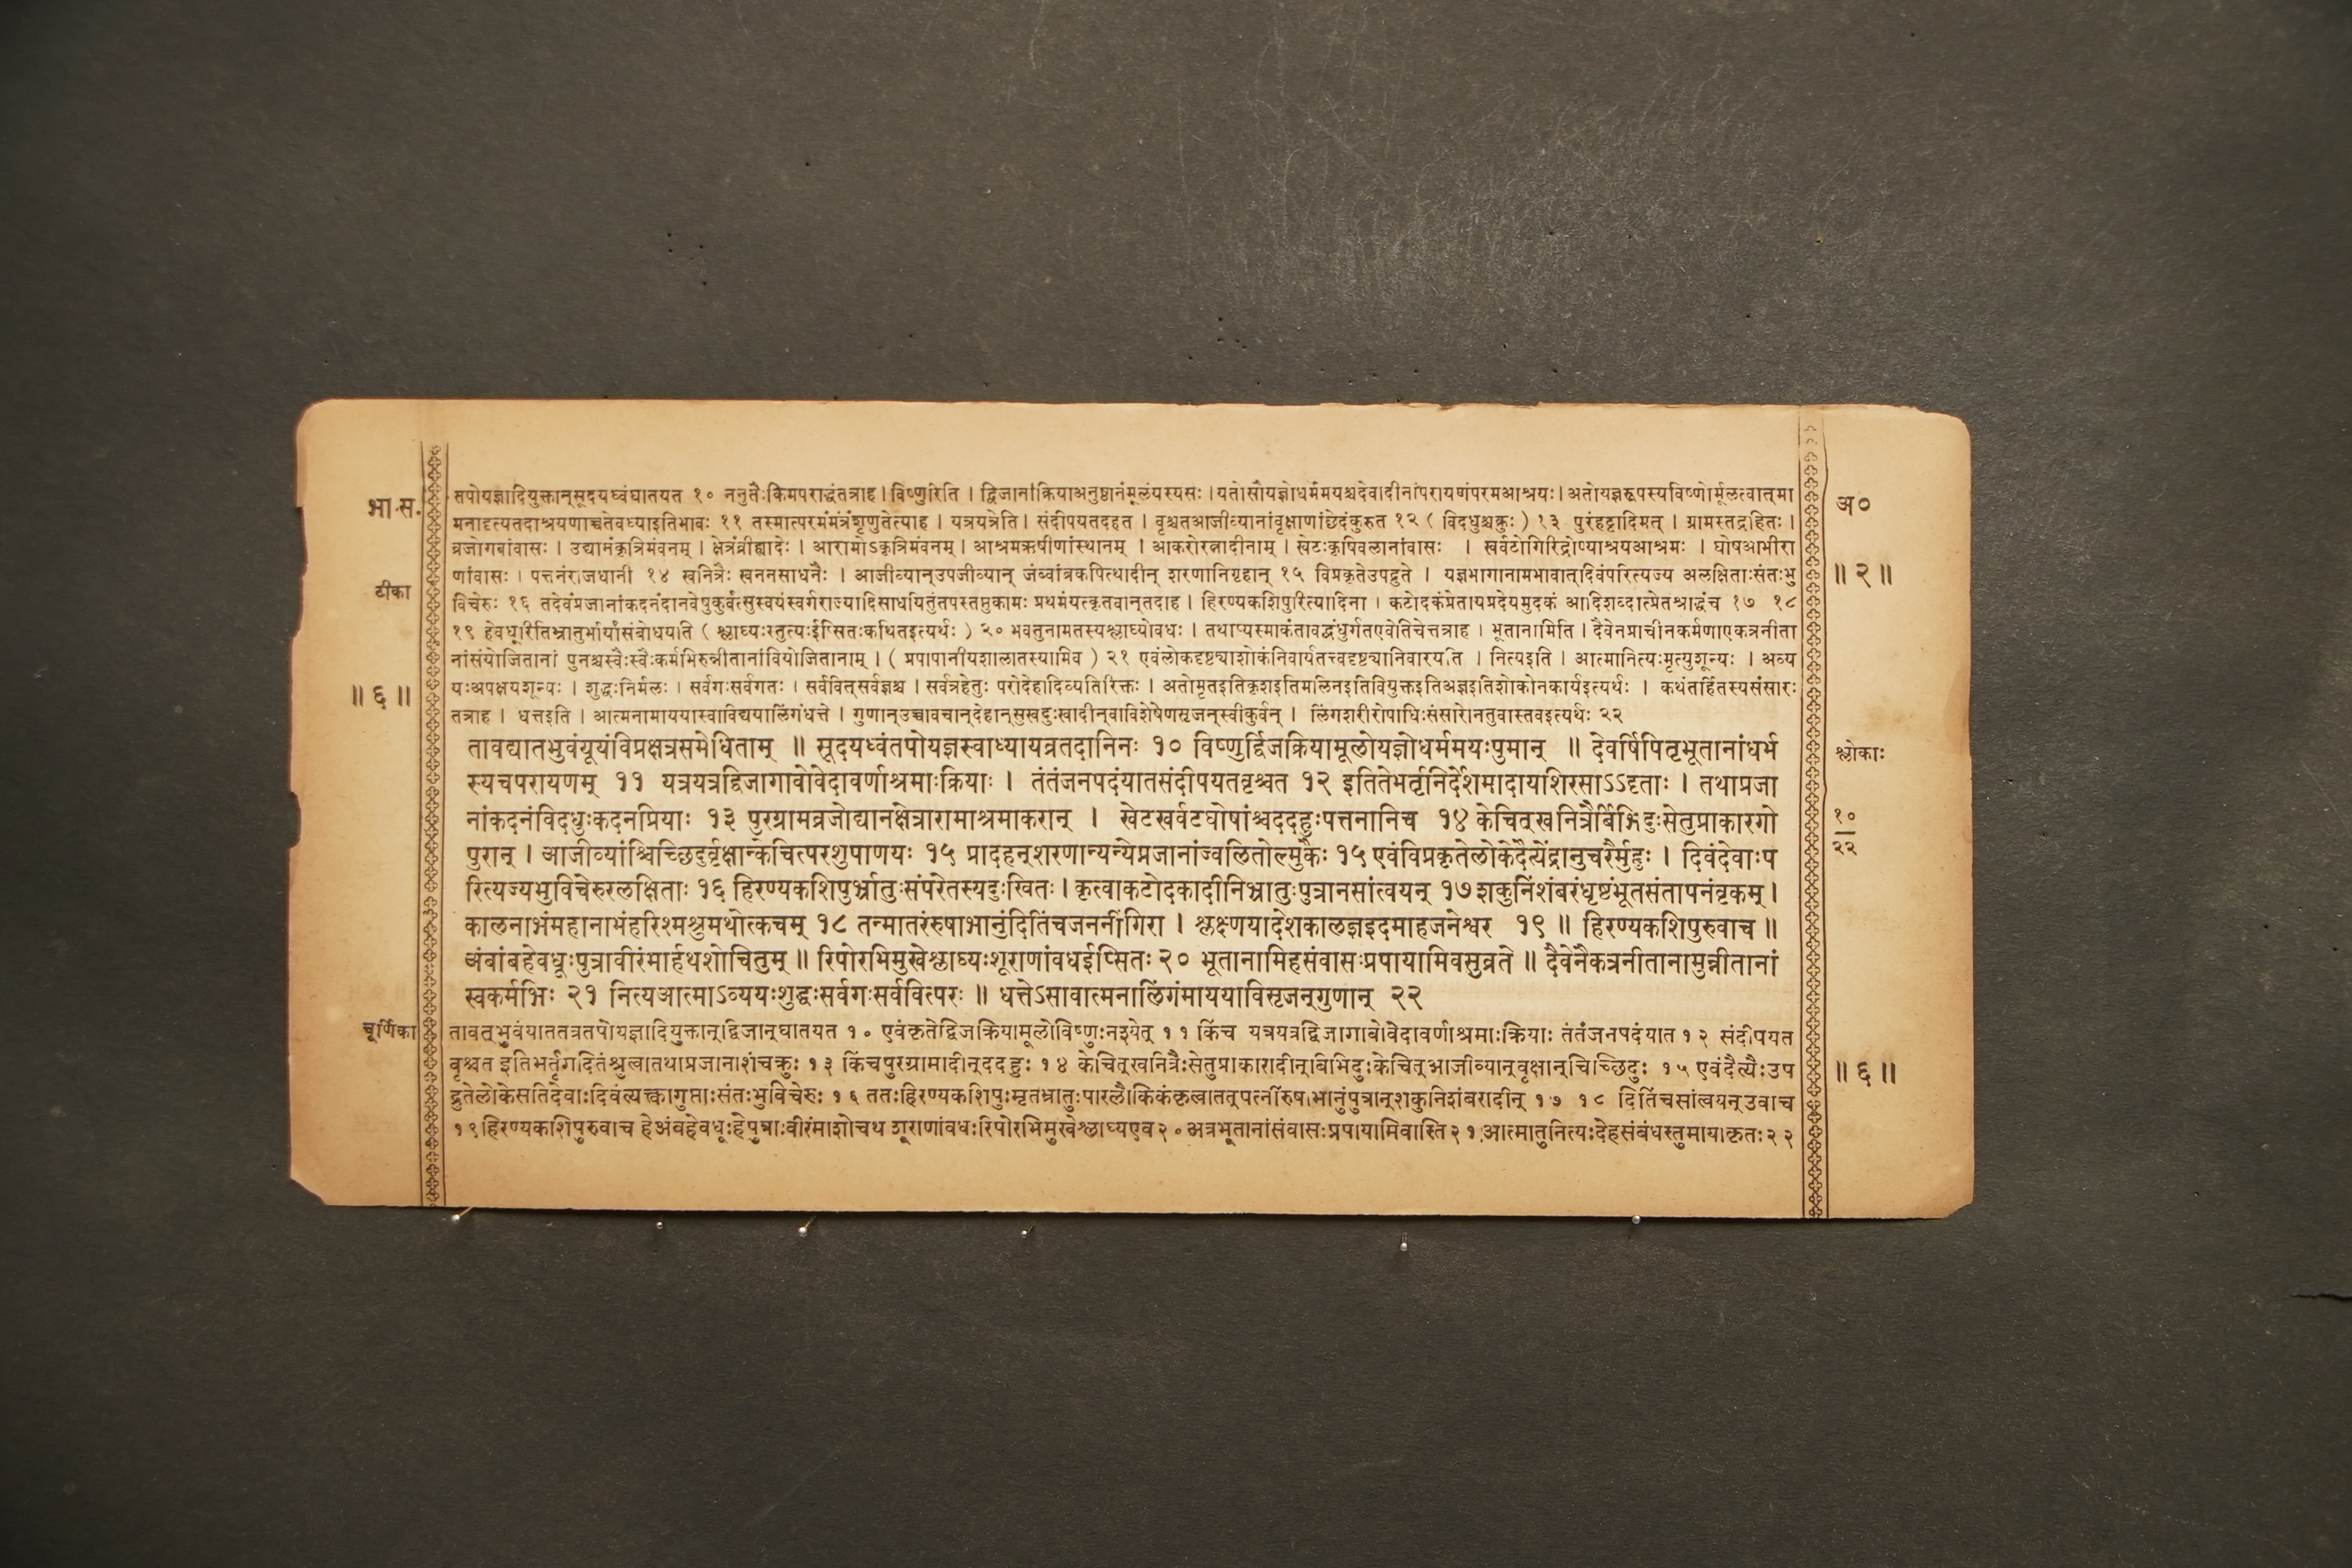 भा. स.
अ०
तपोयज्ञादियुक्तान्सूदयध्वंघातयत १० ननुतैःकिमपराद्धंतत्राह । विष्णुरिति । द्विजानांक्रियाअनुष्ठानंमूलंयस्यसः । यतोसौयज्ञोधर्ममयश्चदेवादीनांपरायणंपरमआश्रयः । अतोयज्ञरूपस्यविष्णोर्मूलत्वात्मा
मनादृत्यतदाश्रयणाच्चतेवध्याइतिभावः ११ तस्मात्परमंमंत्रंशृणुतेत्याह । यत्रयत्रेति । संदीपयतदहत । वृश्चतआजीव्यानांवृक्षाणांछेदंकुरुत १२ ( विदधुश्चक्रुः ) १३ पुरंहट्टादिमत् । ग्रामस्तद्रहितः ।
व्रजोगवांवासः । उद्यानंकृत्रिमंवनम् । क्षेत्रंव्रीह्यादेः । आरामोऽकृत्रिमंवनम् । आश्रमऋषीणांस्थानम् । आकरोरत्नादीनाम् । खेटःकृषिवलानांवासः । खर्वटोगिरिद्रोण्याश्रयआश्रमः । घोषआभीरा
॥ २ ॥
णांवासः । पत्तनंराजधानी १४ खनित्रैः खननसाधनैः । आजीव्यान्उपजीव्यान् जंब्वांब्रकपित्थादीन् शरणानिगृहान् १५ विप्रकृतेउपद्रुते । यज्ञभागानामभावात्दिवंपरित्यज्य अलक्षिताःसंतःभु
टीका
विचेरुः १६ तदेवंप्रजानांकदनंदानवेषुकुर्वत्सुस्वयंस्वर्गराज्यादिसाधयितुंतपस्तप्तुकामः प्रथमंयत्कृतवान्तदाह । हिरण्यकशिपुरित्यादिना । कटोदकंप्रेतायप्रदेयमुदकं आदिशब्दात्प्रेतश्राद्धंच १७ १८
१९ हेवधूरितिभ्रातुर्भार्यांसंबोधयति ( श्लाघ्यःस्तुत्यःईप्सितःकथितइत्यर्थः ) २० भवतुनामतस्यश्लाघ्योवधः । तथाप्यस्माकंतावद्बंधुर्गतएवेतिचेत्तत्राह । भूतानामिति । दैवेनप्राचीनकर्मणाएकत्रनीता
नांसंयोजितानां पुनश्चस्वैःस्वैःकर्मभिरुन्नीतानांवियोजितानाम् । ( प्रपापानीयशालातस्यामिव ) २१ एवंलोकदृष्ट्याशोकंनिवार्यतत्त्वदृष्ट्यानिवारयति । नित्यइति । आत्मानित्यःमृत्युशून्यः । अव्य
॥ ६ ॥
यःअपक्षयशून्यः । शुद्धःनिर्मलः । सर्वगःसर्वगतः । सर्ववित्सर्वज्ञश्च । सर्वत्रहेतुः परोदेहादिव्यतिरिक्तः । अतोमृतइतिकृशइतिमलिनइतिवियुक्तइतिअज्ञइतिशोकोनकार्यइत्यर्थः । कथंतर्हितस्यसंसारः
तत्राह । धत्तइति । आत्मनामाययास्वाविद्ययालिंगंधत्ते । गुणान्उच्चावचान्देहान्सुखदुःखादीन्वाविशेषेणसृजन्स्वीकुर्वन् । लिंगशरीरोपाधिःसंसारोनतुवास्तवइत्यर्थः २२
तावद्यातभुवंयूयंविप्रक्षत्रसमेधिताम् ॥ सूदयध्वंतपोयज्ञस्वाध्यायव्रतदानिनः १० विष्णुर्द्विजक्रियामूलोयज्ञोधर्ममयःपुमान् ॥ देवर्षिपितृभूतानांधर्म
श्लोकाः
स्यचपरायणम् ११ यत्रयत्रद्विजागावोवेदावर्णाश्रमाःक्रियाः । तंतंजनपदंयातसंदीपयतवृश्चत १२ इतितेभर्तृनिर्देशमादायाशिरसाऽऽदृताः । तथाप्रजा
नांकदनंविदधुःकदनप्रियाः १३ पुरग्रामव्रजोद्यानक्षेत्रारामाश्रमाकरान् । खेटखर्वटघोषांश्चददहुःपत्तनानिच १४ केचित्खनित्रैर्बिभिदुःसेतुप्राकारगो
१०
२२
पुरान् । आजीव्यांश्चिच्छिदुर्वृक्षान्केचित्परशुपाणयः १५ प्रादहन्शरणान्यन्येप्रजानांज्वलितोल्मुकैः १५ एवंविप्रकृतेलोकेदैत्येंद्रानुचरैर्मुहुः । दिवंदेवाःप
रित्यज्यभुविचेरुरलक्षिताः १६ हिरण्यकशिपुर्भ्रातुःसंपरेतस्यदुःखितः । कृत्वाकटोदकादीनिभ्रातुःपुत्रानसांत्वयन् १७ शकुनिंशंबरंधृष्टंभूतसंतापनंवृकम् ।
कालनाभंमहानाभंहरिश्मश्रुमथोत्कचम् १८ तन्मातरंरुषाभानुंदितिंचजननींगिरा । श्लक्ष्णयादेशकालज्ञइदमाहजनेश्वर १९ ॥ हिरण्यकशिपुरुवाच ॥
अंबांबहेवधूःपुत्रावीरंमार्हथशोचितुम् ॥ रिपोरभिमुखेश्लाघ्यःशूराणांवधईप्सितः २० भूतानामिहसंवासःप्रपायामिवसुव्रते ॥ दैवेनैकत्रनीतानामुन्नीतानां
स्वकर्मभिः २१ नित्यआत्माऽव्ययःशुद्धःसर्वगःसर्ववित्परः ॥ धत्तेऽसावात्मनालिंगंमाययाविसृजन्गुणान् २२
चूर्णिका
तावत्भुवंयाततत्रतपोयज्ञादियुक्तान्द्विजान्घातयत १० एवंकृतेद्विजक्रियामूलोविष्णुःनश्येत् ११ किंच यत्रयत्रद्विजागावोवेदावर्णाश्रमाःक्रियाः तंतंजनपदंयात १२ संदीपयत
वृश्चत इतिभर्तृगदितंश्रुत्वातथाप्रजानाशंचक्रुः १३ किंचपुरग्रामादीन्ददहुः १४ केचित्खनित्रैःसेतुप्राकारादीन्बिभिदुःकेचित्आजीव्यान्वृक्षान्चिच्छिदुः १५ एवंदैत्यैःउप
॥ ६ ॥
द्रुतेलोकेसतिदेवाःदिवंत्यक्त्वागुप्ताःसंतःभुविचेरुः १६ ततःहिरण्यकशिपुःमृतभ्रातुःपारलौकिकंकृत्वातत्पत्नींरुषाभानुंपुत्रान्शकुनिशंबरादीन् १७ १८ दितिंचसांत्वयन्उवाच
१९ हिरण्यकशिपुरुवाच हेअंबहेवधूःहेपुत्राःवीरंमाशोचथ शूराणांवधःरिपोरभिमुखेश्लाघ्यएव २० अत्रभूतानांसंवासःप्रपायामिवास्ति २१ आत्मातुनित्यःदेहसंबंधस्तुमायाकृतः २२